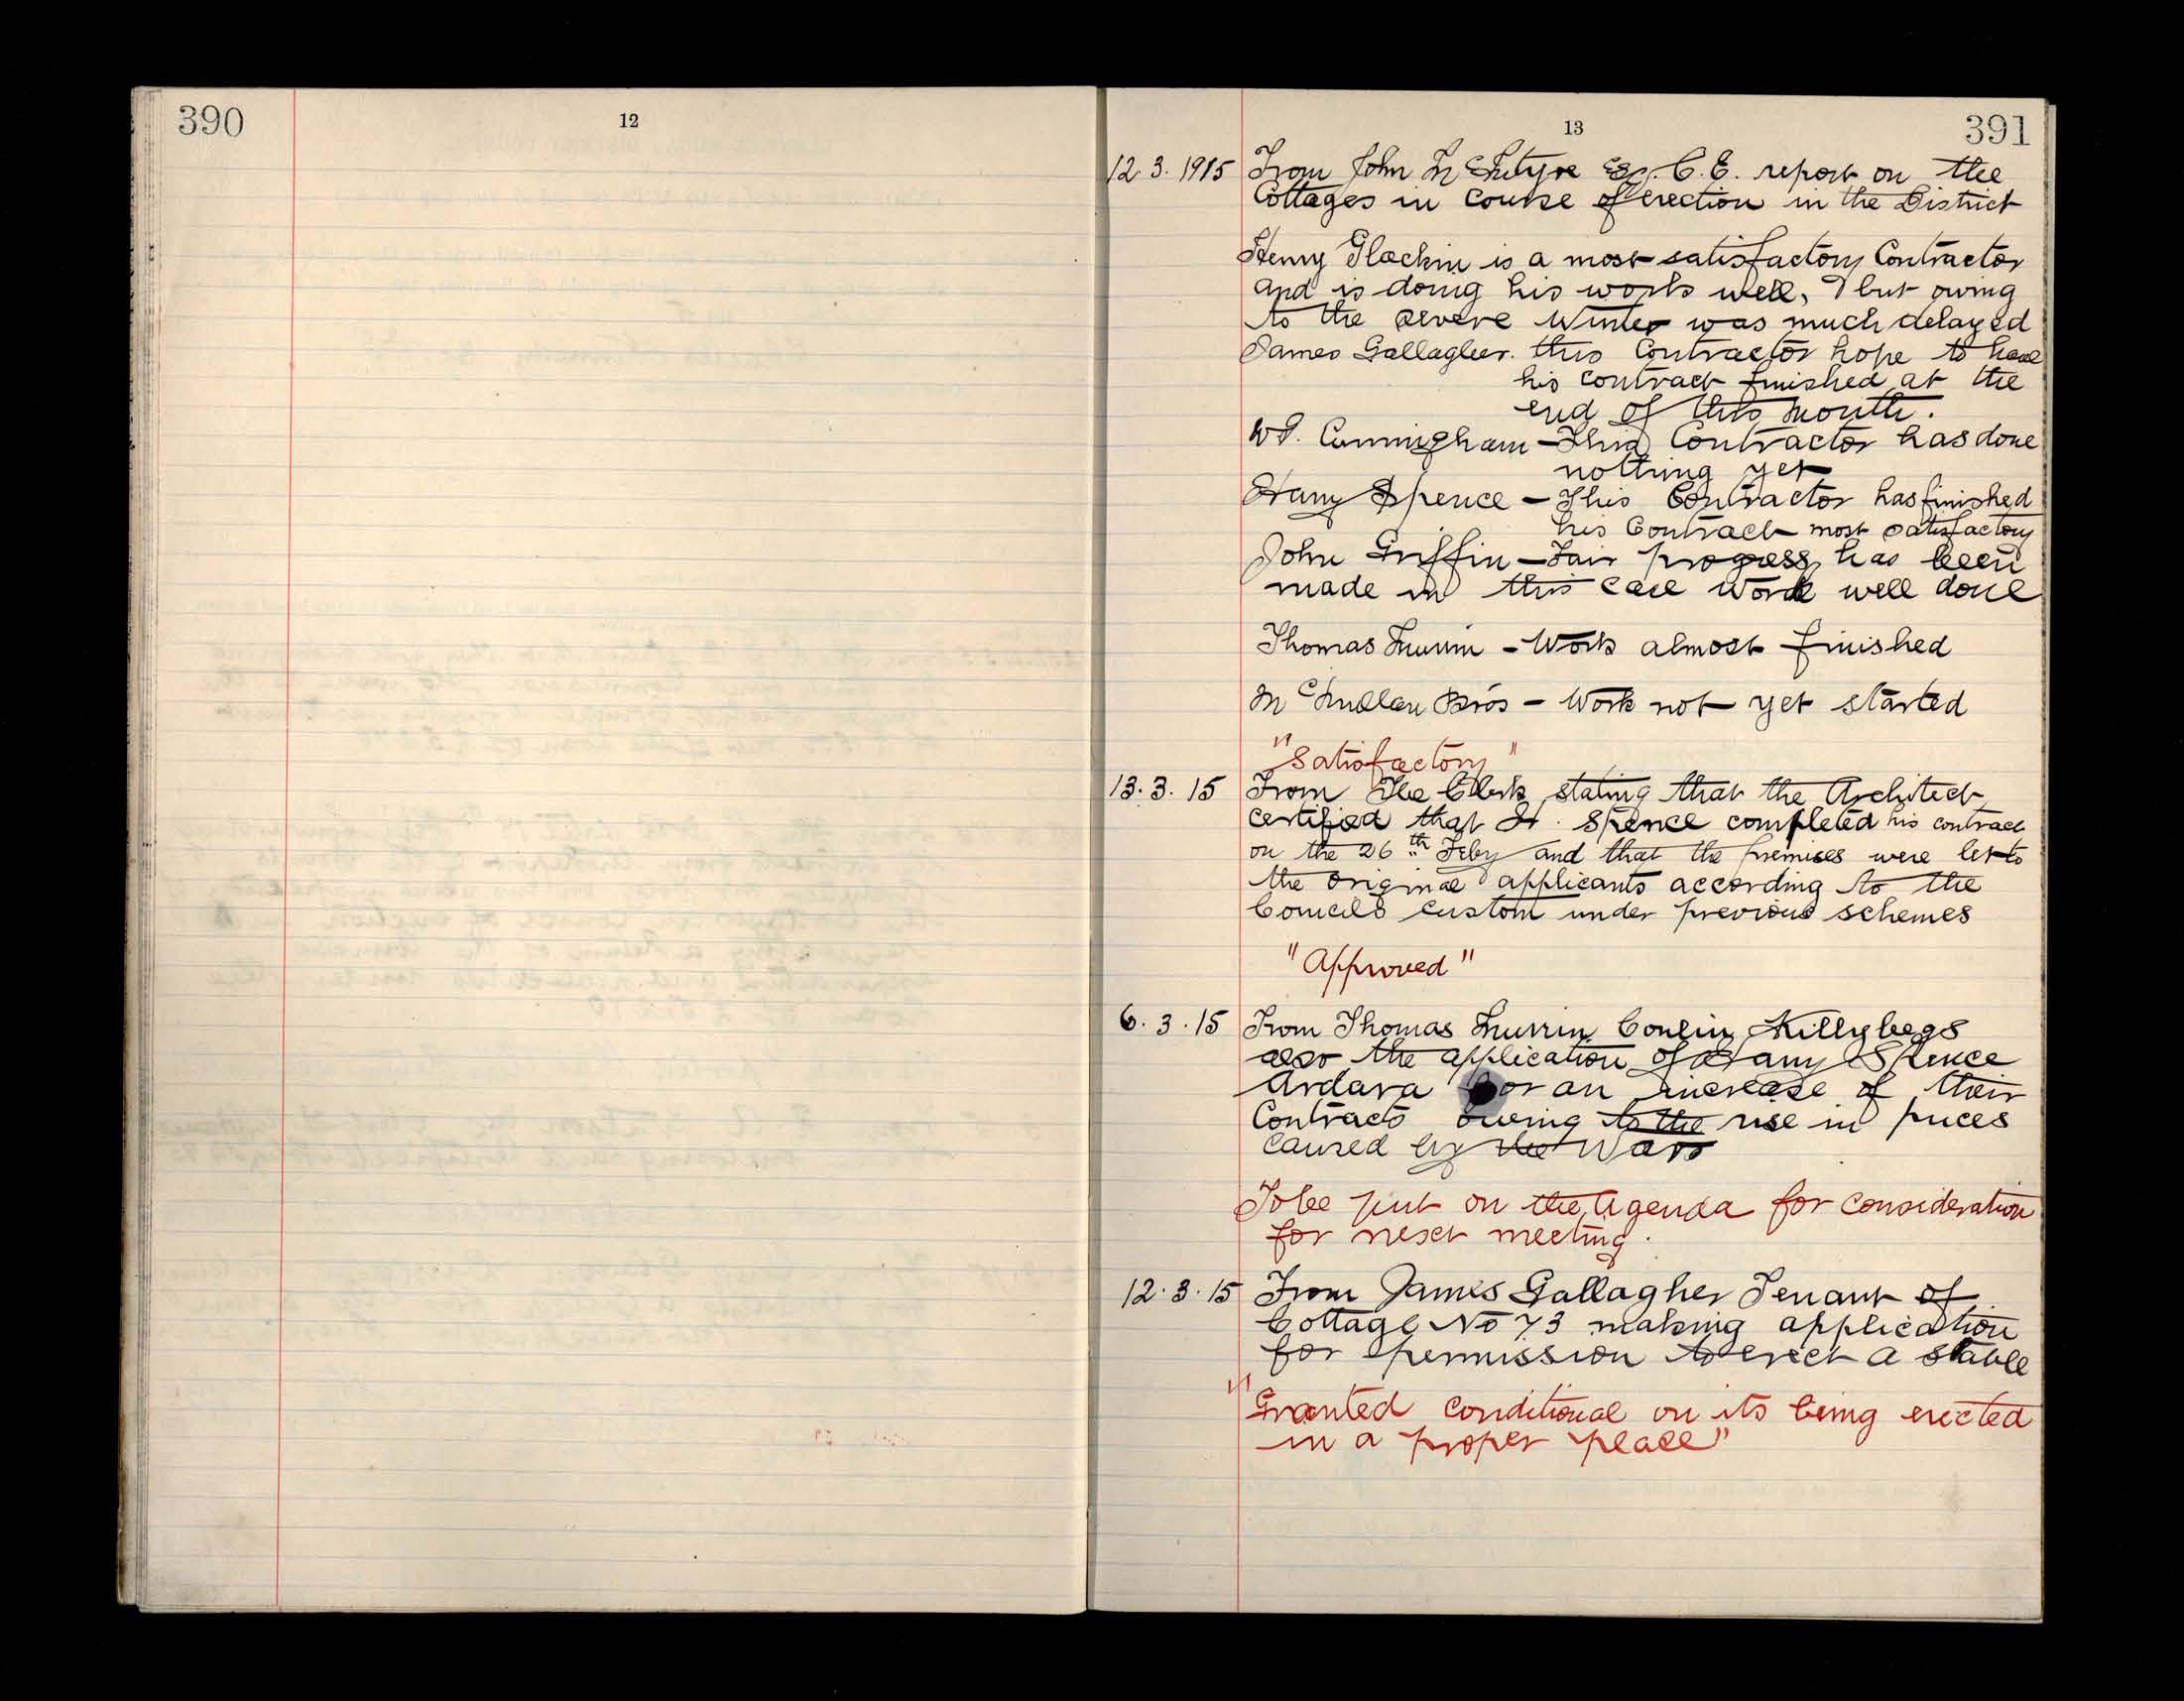 390
12
13
391
12.3.1915 From John McIntyre Esq. C.E. report on the
Cottages in course of erection in the District
Henry Glackin is a most satisfactory Contractor
and is doing his work well, but owing
to the severe Winter was much delayed
James Gallagher. this Contractor hope to have
his contract finished at the
end of this month.
Cunningham - This Contractor has done
nothing yet
Harry Spence - This Contractor has finished
his Contract most satisfactory
John Griffin - Fair progress has been
made in this case work well done
Thomas Murrin - Work almost finished
McMullan Bros - Work not yet started
"Satisfactory"
13.3.15 From The Clerk stating that the Architect
certified that H. Spence completed his contract
on the 26th Feby and that the premises were let to
the original applicants according to the
Councils custom under previous schemes
"Approved"
6.3.15 From Thomas Murrin Conlin Killybegs
also the application of Harry Spence
Ardara for an increase of their
Contracts owing to the rise in prices
caused by the War
To be put on the Agenda for consideration
for next meeting.
12.3.15 From James Gallagher Tenant of
Cottage No 73 making application
for permission to erect a stable
"Granted conditional on its being erected
in a proper place"